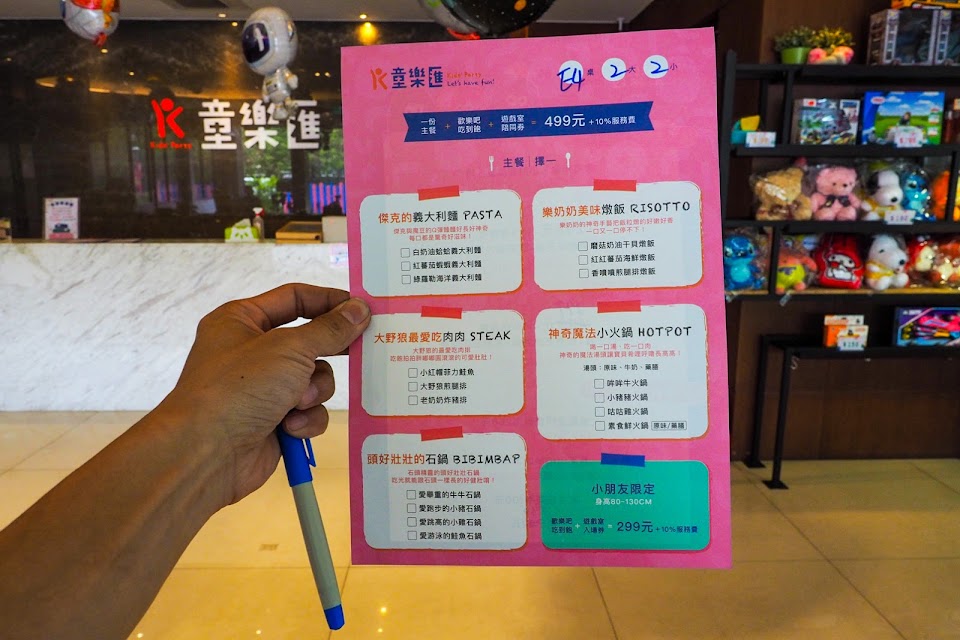 童樂匯
Kids Party
童樂匯 Kids Party
Let's have fun!
E4 桌 2 大 2 小
一份主餐 + 歡樂吧吃到飽 + 遊戲室陪同券 = 499元 +10%服務費
主餐 擇一
傑克的義大利麵 PASTA
傑克與魔豆的Q彈麵麵好長好神奇
每口都是驚奇好滋味!
白奶油蛤蛤義大利麵
紅蕃茄蝦蝦義大利麵
綠羅勒海洋義大利麵
樂奶奶美味燉飯 RISOTTO
樂奶奶的神奇手藝把飯粒燉的好嫩好香
一口又一口停不下!
蘑菇奶油干貝燉飯
紅紅蕃茄海鮮燉飯
香噴噴煎腿排燉飯
大野狼最愛吃肉肉 STEAK
大野狼的最愛吃肉排
小紅帽菲力鮭魚
大野狼煎腿排
老奶奶炸豬排
神奇魔法小火鍋 HOTPOT
喝一口湯、吃一口肉
神奇的魔法湯頭讓寶貝希哩呼嚕長高高!
湯頭:原味、牛奶、藥膳
哞哞牛火鍋
小豬豬火鍋
咕咕雞火鍋
素食鮮火鍋 原味/藥膳
頭好壯壯的石鍋 BIBIMBAP
石頭積疊的頭好壯壯石鍋
愛舉重的牛牛石鍋
愛跑步的小豬石鍋
愛跳高的小雞石鍋
愛游泳的鮭魚石鍋
小朋友限定
身高80-130CM
歡樂吧吃到飽 + 遊戲室入場券 = 299元 +10%服務費